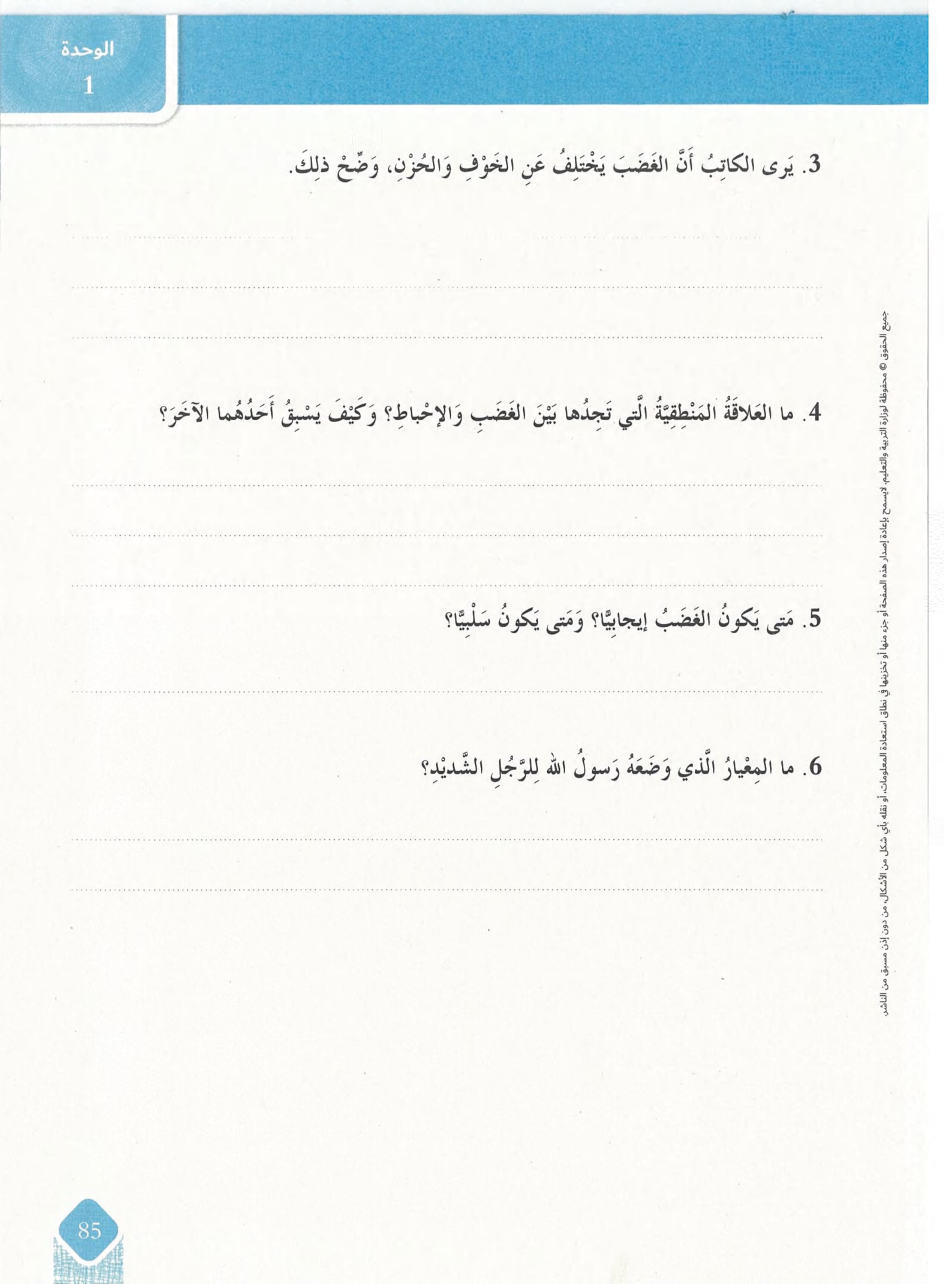 الوحدة
1
3. يَرى الكاتِبُ أَنَّ الغَضَبَ يَخْتَلِفُ عَنِ الخَوْفِ وَالحُزْنِ، وَضِّحْ ذلِكَ.
4. ما العَلاقَةُ المَنْطِقِيَّةُ الَّتي تَجِدُها بَيْنَ الغَضَبِ وَالإحْباطِ؟ وَكَيْفَ يَسْبِقُ أَحَدُهُما الآخَرَ؟
5. مَتى يَكونُ الغَضَبُ إيجابِيًّا؟ وَمَتى يَكونُ سَلْبِيًّا؟
6. ما المِعْيارُ الَّذي وَضَعَهُ رَسولُ الله لِلرَّجُلِ الشَّديْدِ؟
جميع الحقوق © محفوظة لوزارة التربية والتعليم. لايسمح بإعادة إصدار هذه الصفحة أو جزء منها أو تخزينها في نطاق استعادة المعلومات، أو نقله بأي شكل من الأشكال، من دون إذن مسبق من الناشر.
85